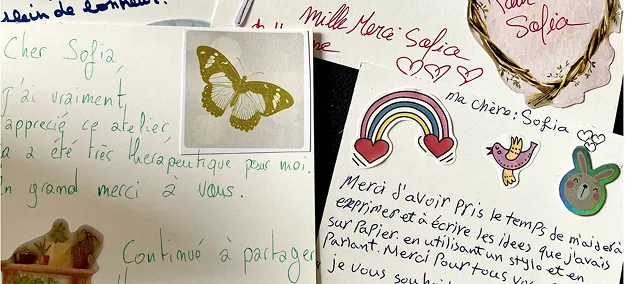 plein de bonheur.
Cher Sofia
J'ai vraiment
apprecié ce atelier
ça a été très thérapeutique pour moi.
un grand merci à vous.
Continué à partager
Mille Merci Sofia
Pour
Sofia
ma chère: Sofia
Merci d'avoir pris le temps de m'aider à
exprimer et à écrire les idees que j'avais
sur Papier en utilisant un stylo et en
Parlant. Merci Pour tous
je vous souhai